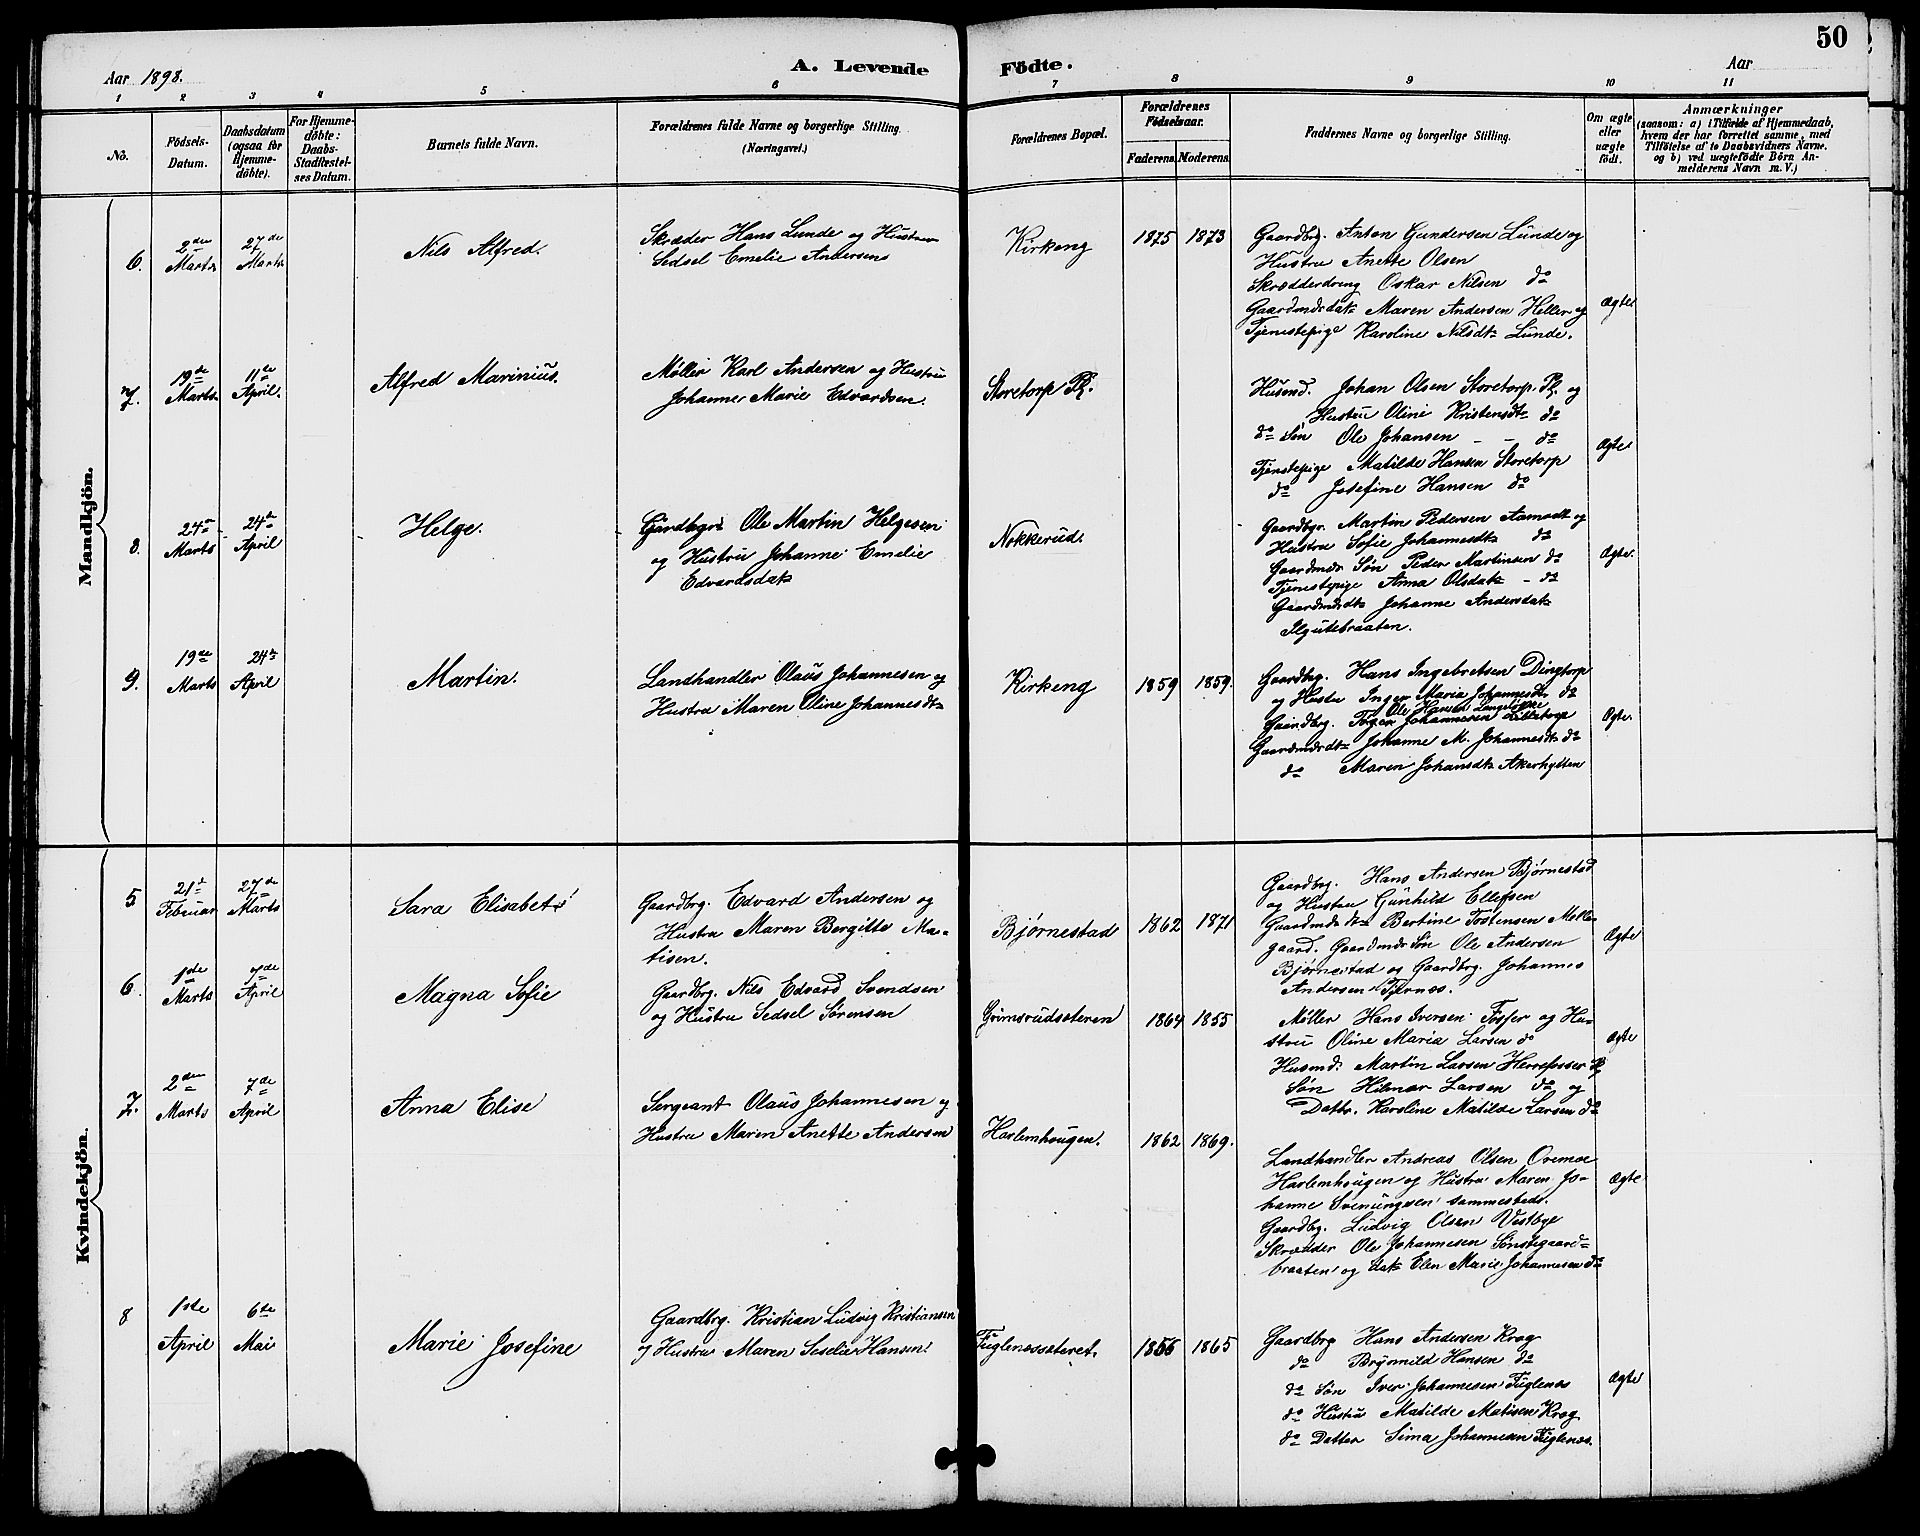 50
Aar 1898.
A. Levende Födte.
Aar
1 2 3 4 5 6 7 8 9 10 11
No.
Födsels-
Datum.
Daabsdatum
(ogsaa for
Hjemme-
döbte).
For Hjemme-
döbte:
Daabs-
Stadfæstel-
ses Datum.
Barnets fulde Navn.
Forældrenes fulde Navne og borgerlige Stilling.
(Næringsvei.)
Forældrenes Bopæl.
Forældrenes
Födselsaar.
Faderens. Moderens.
Faddernes Navne og borgerlige Stilling.
Om ægte
eller
uægte
födt.
Anmærkninger
(saasom: a) i Tilfælde af Hjemmedaab,
hvem der har forrettet samme, med
Tilföielse af to Daabsvidners Navne.
og b) ved uægtefödte Börn An-
melderens Navn m. V.)
Mandkjön.
6.
2den
Marts
27de
Marts
Nils Alfred.
Skræder Hans Lunde og Hustru
Sedsel Emelie Andersens
Kirkeng
1875 1873
Gaardbrg. Anton Gundersen Lunde og
Hustru Anette Olsen
Skrædderdreng Oskar Nilsen do
Gaardmdsdatr Maren Andersen Heller og
Tjenestepige Karoline Nilsdtr Lunde.
Ægte
7.
19de
Marts.
11te
April.
Alfred Marinius.
Møller Karl Andersen og Hustru
Johanne Marie Edvardsen.
Storetorp Pl.
Husmd. Johan Olsen Storetorp. Pl. og
Hustru Oline Kristensdtr do
do Søn Ole Johansen - - do
Tjenstepige Matilde Hansen Storetorp
do Josefine Hansen do
Ægte
8.
24de
Marts
24de
April
Helge.
Gårdbgr. Ole Martin Helgesen
og Hustru Johanne Emelie
Edvardsdatr
Nokkerud.
Gaardbgr. Martin Pedersen Aamodt og
Hustru Sofie Johannesdtr do
Gaardmds Søn Peder Martinsen do
Tjenestepige Anna Olsdatr - do
Gaardmdsdtr Johanne Andersdatr
Ilgutebraaten.
Ægte.
9.
19de
Marts
24de
April
Martin.
Landhandler Olaus Johannesen og
Hustru Maren Oline Johannesdtr
Kirkeng
1859 1859.
Gaardbg. Hans Ingebretsen Dingtorp
og Hustru Inger Maria Johannesdtr do
Ole Hansen
Gaardbrg. Johannesen Lilletorp
Gaardmdsdtr Johanne M. Johannesdtr do
do Maren Johansdtr Akerhytten
Ægte.
Kvindekjön.
5
21de
Februar
27de
Marts
Sara Elisabet
Gaardbrg. Edvard Andersen og
Hustru Maren Bergitte Ma-
tisen.
Bjørnestad
1862 1871
Gaardbrg. Hans Andersen Bjørnestad
og Hustru Gunhild Ellefsen
Gaardmds dtr Bertine Tostensen Mølle-
gaard. Gaardmds Søn Ole Andersen
Bjørnestad og Gaardbrg. Johannes
Andersen Tjernæs.
Ægte
6.
1ste
Marts
7de
April
Magna Sofie
Gaardbrg. Nils Edvard Svendsen
og Hustru Sedsel Sørensen
Grimsrudsæteren
1864 1855
Møller Hans Iversen Fosser og Hu-
stru Oline Maria Larsen do
Husmd. Martin Larsen Herrefosser Pl.
Søn Hilmar Larsen do og
Dattr. Karoline Matilde Larsen do
Ægte
7.
2den
Marts
7de
April
Anna Elise
Sergeant Olaus Johannesen og
Hustru Maren Anette Andersen
Harlemhougen.
1862 1869.
Landhandler Andreas Olsen Oremoe
Harlemhougen og Hustru Maren Jo-
hanne Svenungsen sammestads.
Gaardbg. Ludvig Olsen Vestbye
Skrædder Ole Johannesen Sønstegaard-
braaten og datr Elen Marie Johannesen do
Ægte
8
1ste
April
6te
Mai
Marie Josefine
Gaardbrg. Kristian Ludvig Kristiansen
og Hustru Maren Seselie Hansen
Fuglenessæteret.
1856 1865
Gaardbrg Hans Andersen Krog
do Brynmild Hansen do
do Søn Iver Johannesen Fuglenæs
do Hustru Matilde Matisen Krog
do Datter Sima Johannesen Fuglenæs.
Ægte